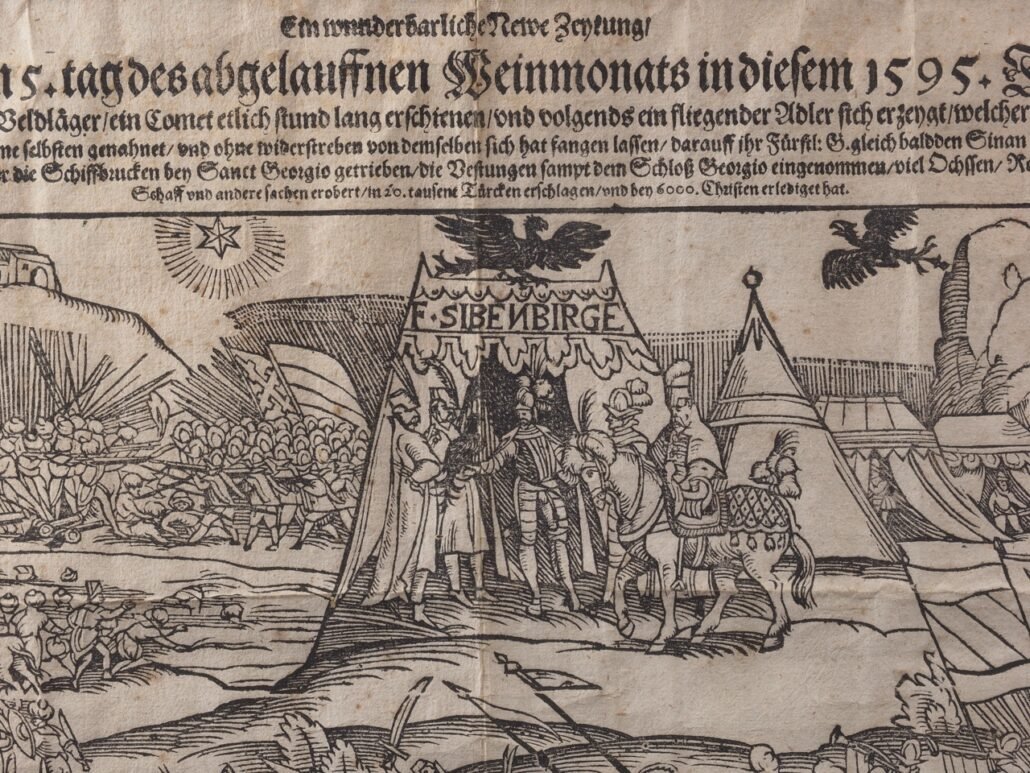 Ein wunderbarliche Newe Zeytung/
5. tag des abgelauffnen Weinmonats in diesem 1595.
Veldläger/ein Comet etlich stund lang erschienen/vnd volgends ein fliegender Adler sich erzeygt/welcher
selbsten genahnet/vnd ohne widerstreben von demselben sich hat fangen lassen/darauff ihr Fürstl: G. gleich bald den Sinan
die Schiffbrucken bey Sanct Georgio getrieben/die Vestungen sampt dem Schloß Georgio eingenommen/viel Ochssen/
Schaff vnd andere sachen erobert/in 20. tausent Türcken erschlagen/vnd bey 6000. Christen erlediget hat.
F·SIBENBIRGE